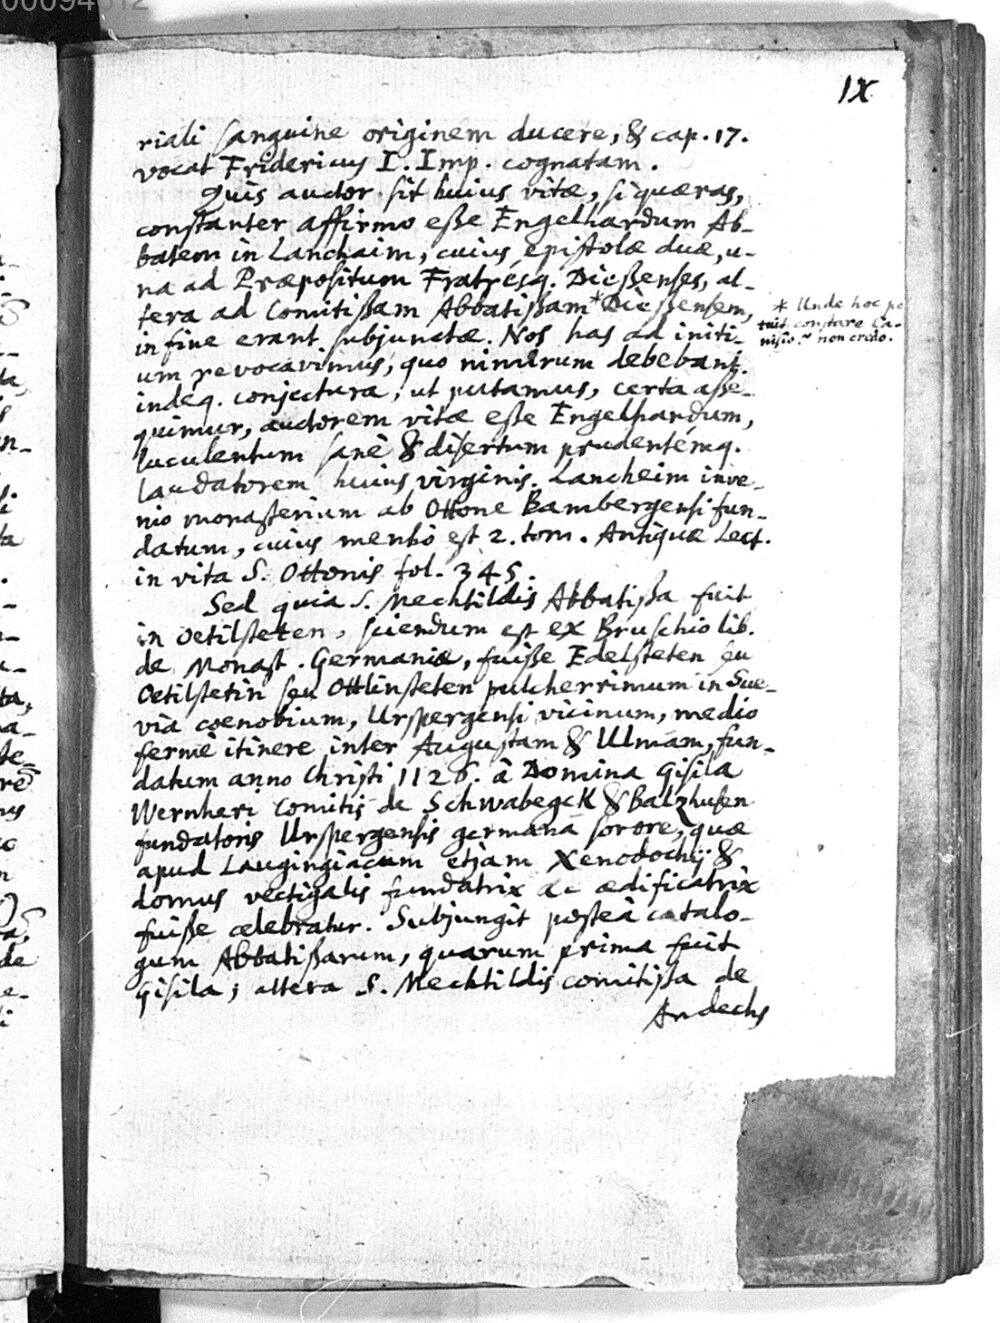 00094612
IX
riali sanguine originem ducere, & cap. 17.
vocat Fridericus I. Imp. cognatam.
Quis auctor sit huius vitæ, si quæras,
constanter affirmo esse Engelhardum Ab-
batem in Lanchaim, cuius epistolæ duæ, u-
na ad Præpositum Fratresq. Diessenses, al-
tera ad Comitissam Abbatissam * Diessensem,
in fine erant subjunctæ. Nos has ad initi-
um revocavimus, quo nimirum debebant.
indeq. conjectura, ut putamus, certa asse-
quimur, auctorem vitæ esse Engelhardum,
luculentum sanè & disertum prudentémq.
laudatorem huius virginis. Lancheim inve-
nio monasterium ab Ottone Bambergensi fun-
datum, cuius mentio est 2. tom. Antiquæ Lect.
in vita S. Ottonis fol. 345.
Sed quia S. Mechtildis Abbatissa fuit
in Oetilsteten, sciendum est ex Bruschio lib.
de Monast. Germaniæ, fuisse Edelsteten seu
Oetilstetin seu Ottlinsteten pulcherrimum in Sue-
via coenobium, Urspergensi vicinum, medio
fermè itinere inter Augustam & Ulmam, fun-
datum anno Christi 1126. à Domina Gisila
Wernheri Comitis de Schwabegck & Balzhusen
fundatoris Urspergensis germana sorore, quæ
apud Laugingiacum etiam Xenodochij &
domus vectigalis fundatrix ac ædificatrix
fuisse celebratur. Subjungit posteà catalo-
gum Abbatissarum, quarum prima fuit
Gisila; altera S. Mechtildis comitissa de
Andechs
* Unde hoc po
tuit constare Ca-
nisio? non credo.